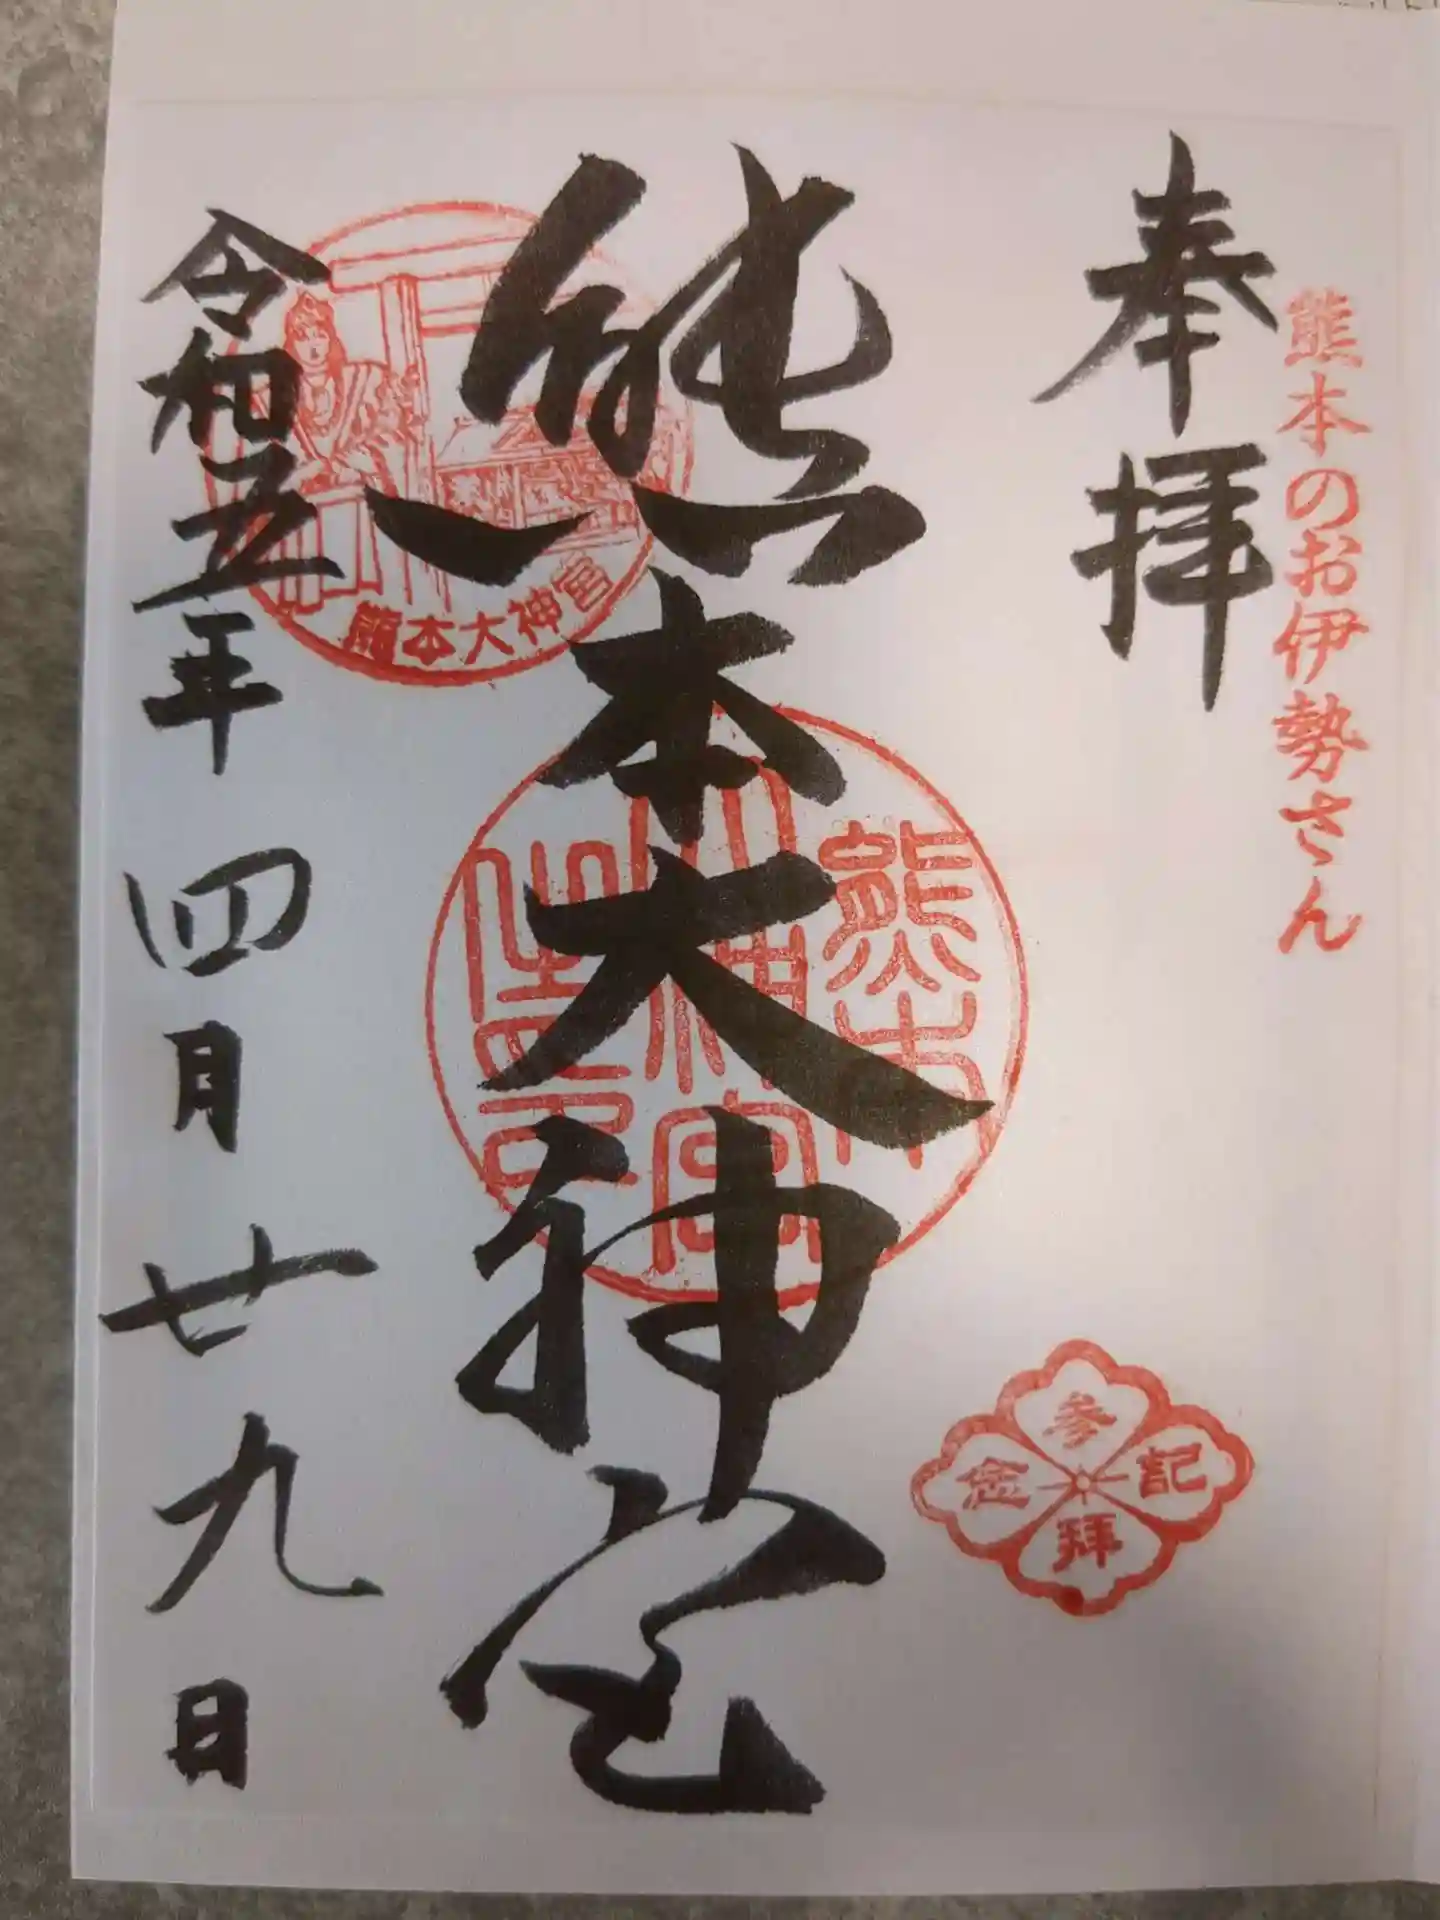 熊本のお伊勢さん
奉拝
熊本大神宮
熊本大神宮
熊本
大神宮
参拝記念
令和五年四月廿九日